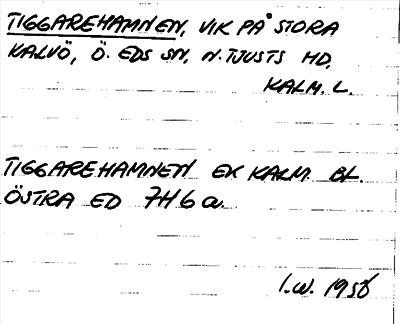 TIGGAREHAMNEN, VIK PÅ STORA
KALVÖ, Ö. EDS SN, N. TJUSTS HD,
KALM. L.
TIGGAREHAMNEN EK KALM. BL.
ÖSTRA ED 7H6a.
I.W. 1956